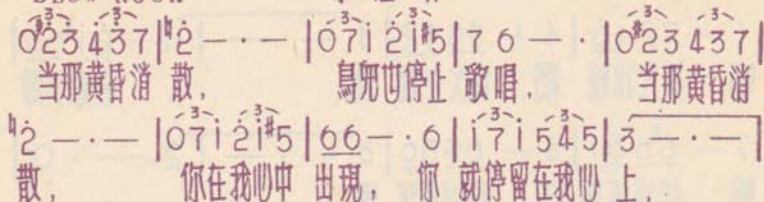 0#23 437|♮2 — · — |071 21#5|7 6 — · |0#23 437|
当那黄昏消 散， 鳥兒也停止 歌唱． 当那黄昏消
♮2 — · — |071 21#5|66 — · 6|171 545|3 — · — |
散， 你在我心中 出現， 你 就停留在我心 上．